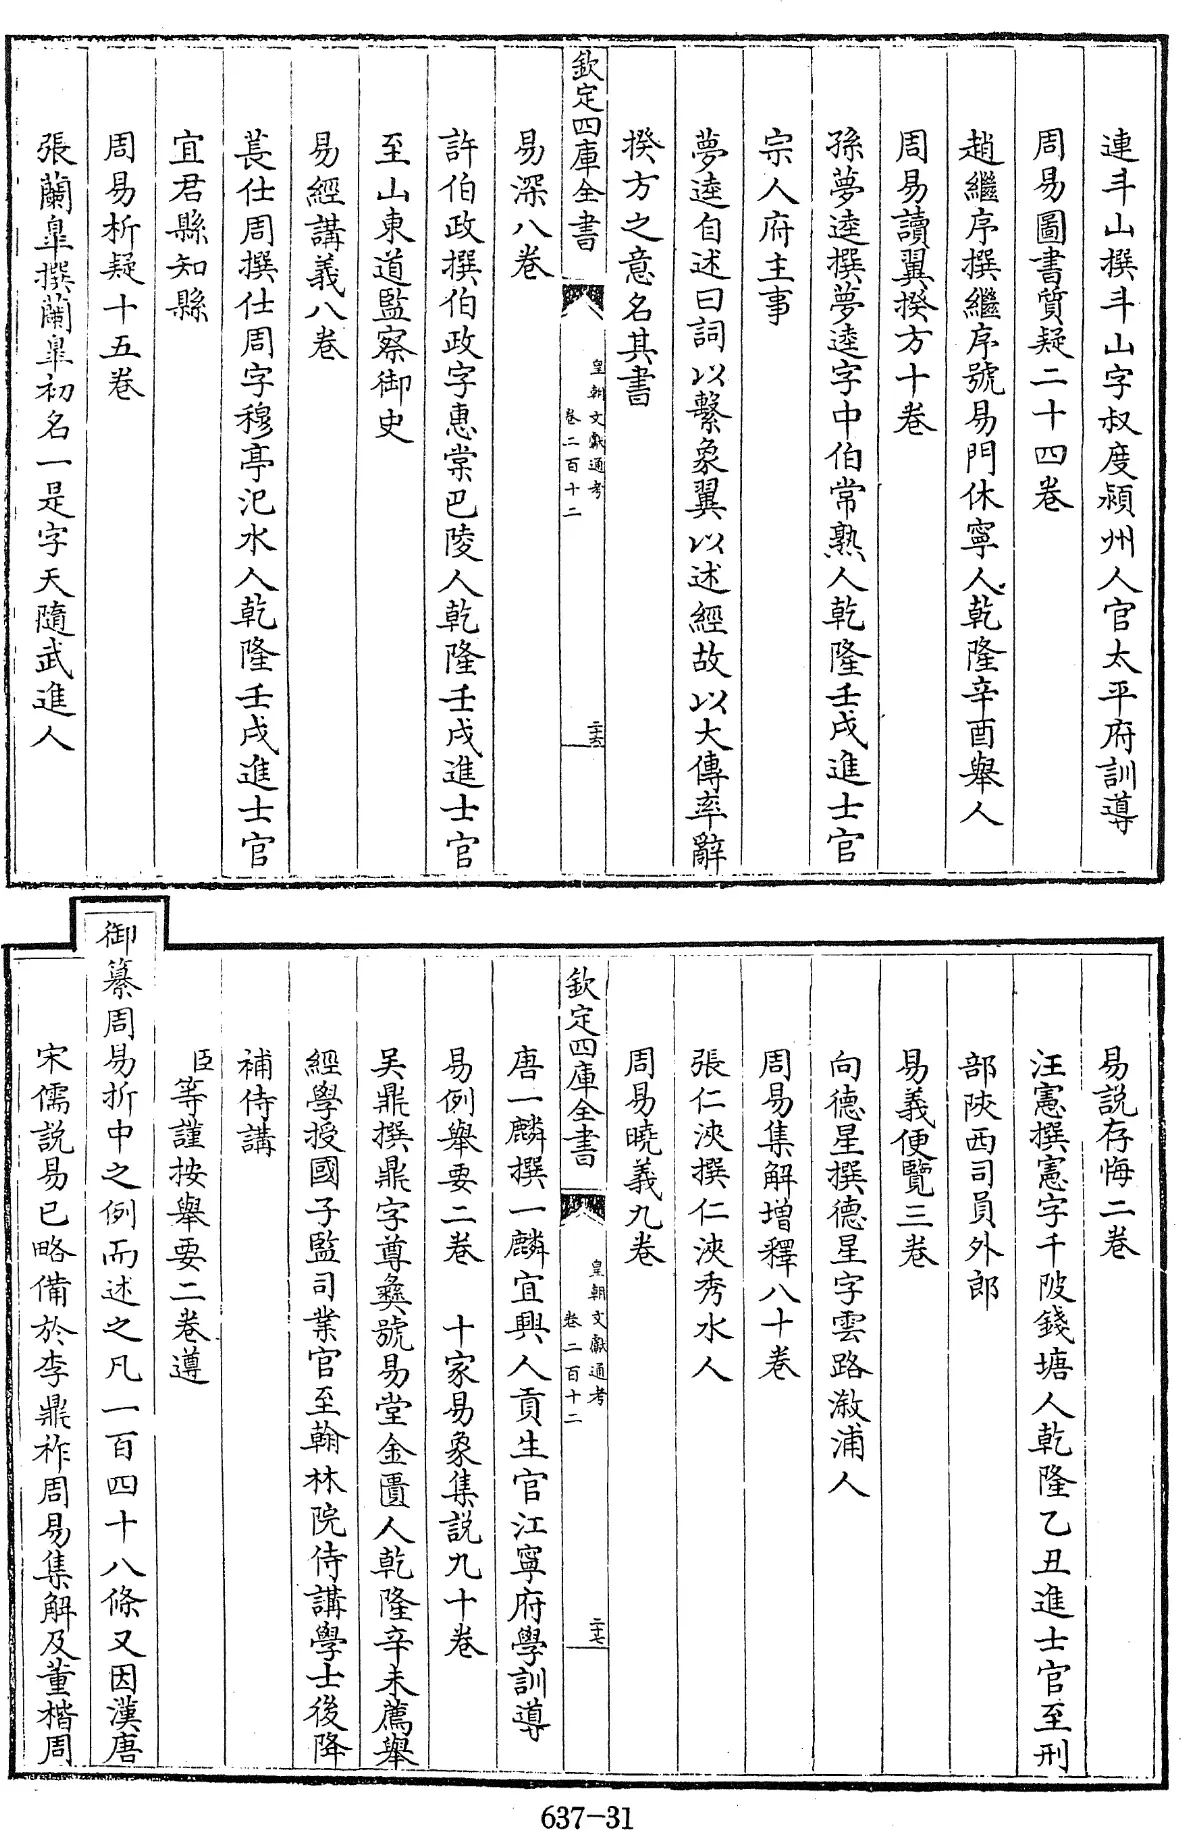 連斗山撰斗山字叔度潁州人官太平府訓導
周易圖書質疑二十四卷
趙繼序撰繼序號易門休寧人乾隆辛酉舉人
周易讀翼揆方十卷
孫夢逵撰夢逵字中伯常熟人乾隆壬戌進士官
宗人府主事
夢逵自述曰詞以繫象翼以述經故以大傳率辭
揆方之意名其書
欽定四庫全書
皇朝文獻通考
卷二百十二
二十六
易深八卷
許伯政撰伯政字惠棠巴陵人乾隆壬戌進士官
至山東道監察御史
易經講義八卷
萇仕周撰仕周字穆亭汜水人乾隆壬戌進士官
宜君縣知縣
周易析疑十五卷
張蘭臯撰蘭臯初名一是字天隨武進人
易說存悔二卷
汪憲撰憲字千陂錢塘人乾隆乙丑進士官至刑
部陜西司員外郎
易義便覽三卷
向德星撰德星字雲路漵浦人
周易集解增釋八十卷
張仁浹撰仁浹秀水人
周易曉義九卷
欽定四庫全書
皇朝文獻通考
卷二百十二
二十七
唐一麟撰一麟宜興人貢生官江寧府學訓導
易例舉要二卷 十家易象集說九十卷
吳鼎撰鼎字尊彝號易堂金匱人乾隆辛未薦舉
經學授國子監司業官至翰林院侍講學士後降
補侍講
臣等謹按舉要二卷遵
御纂周易折中之例而述之凡一百四十八條又因漢唐
宋儒說易已略備於李鼎祚周易集解及董楷周
637-31